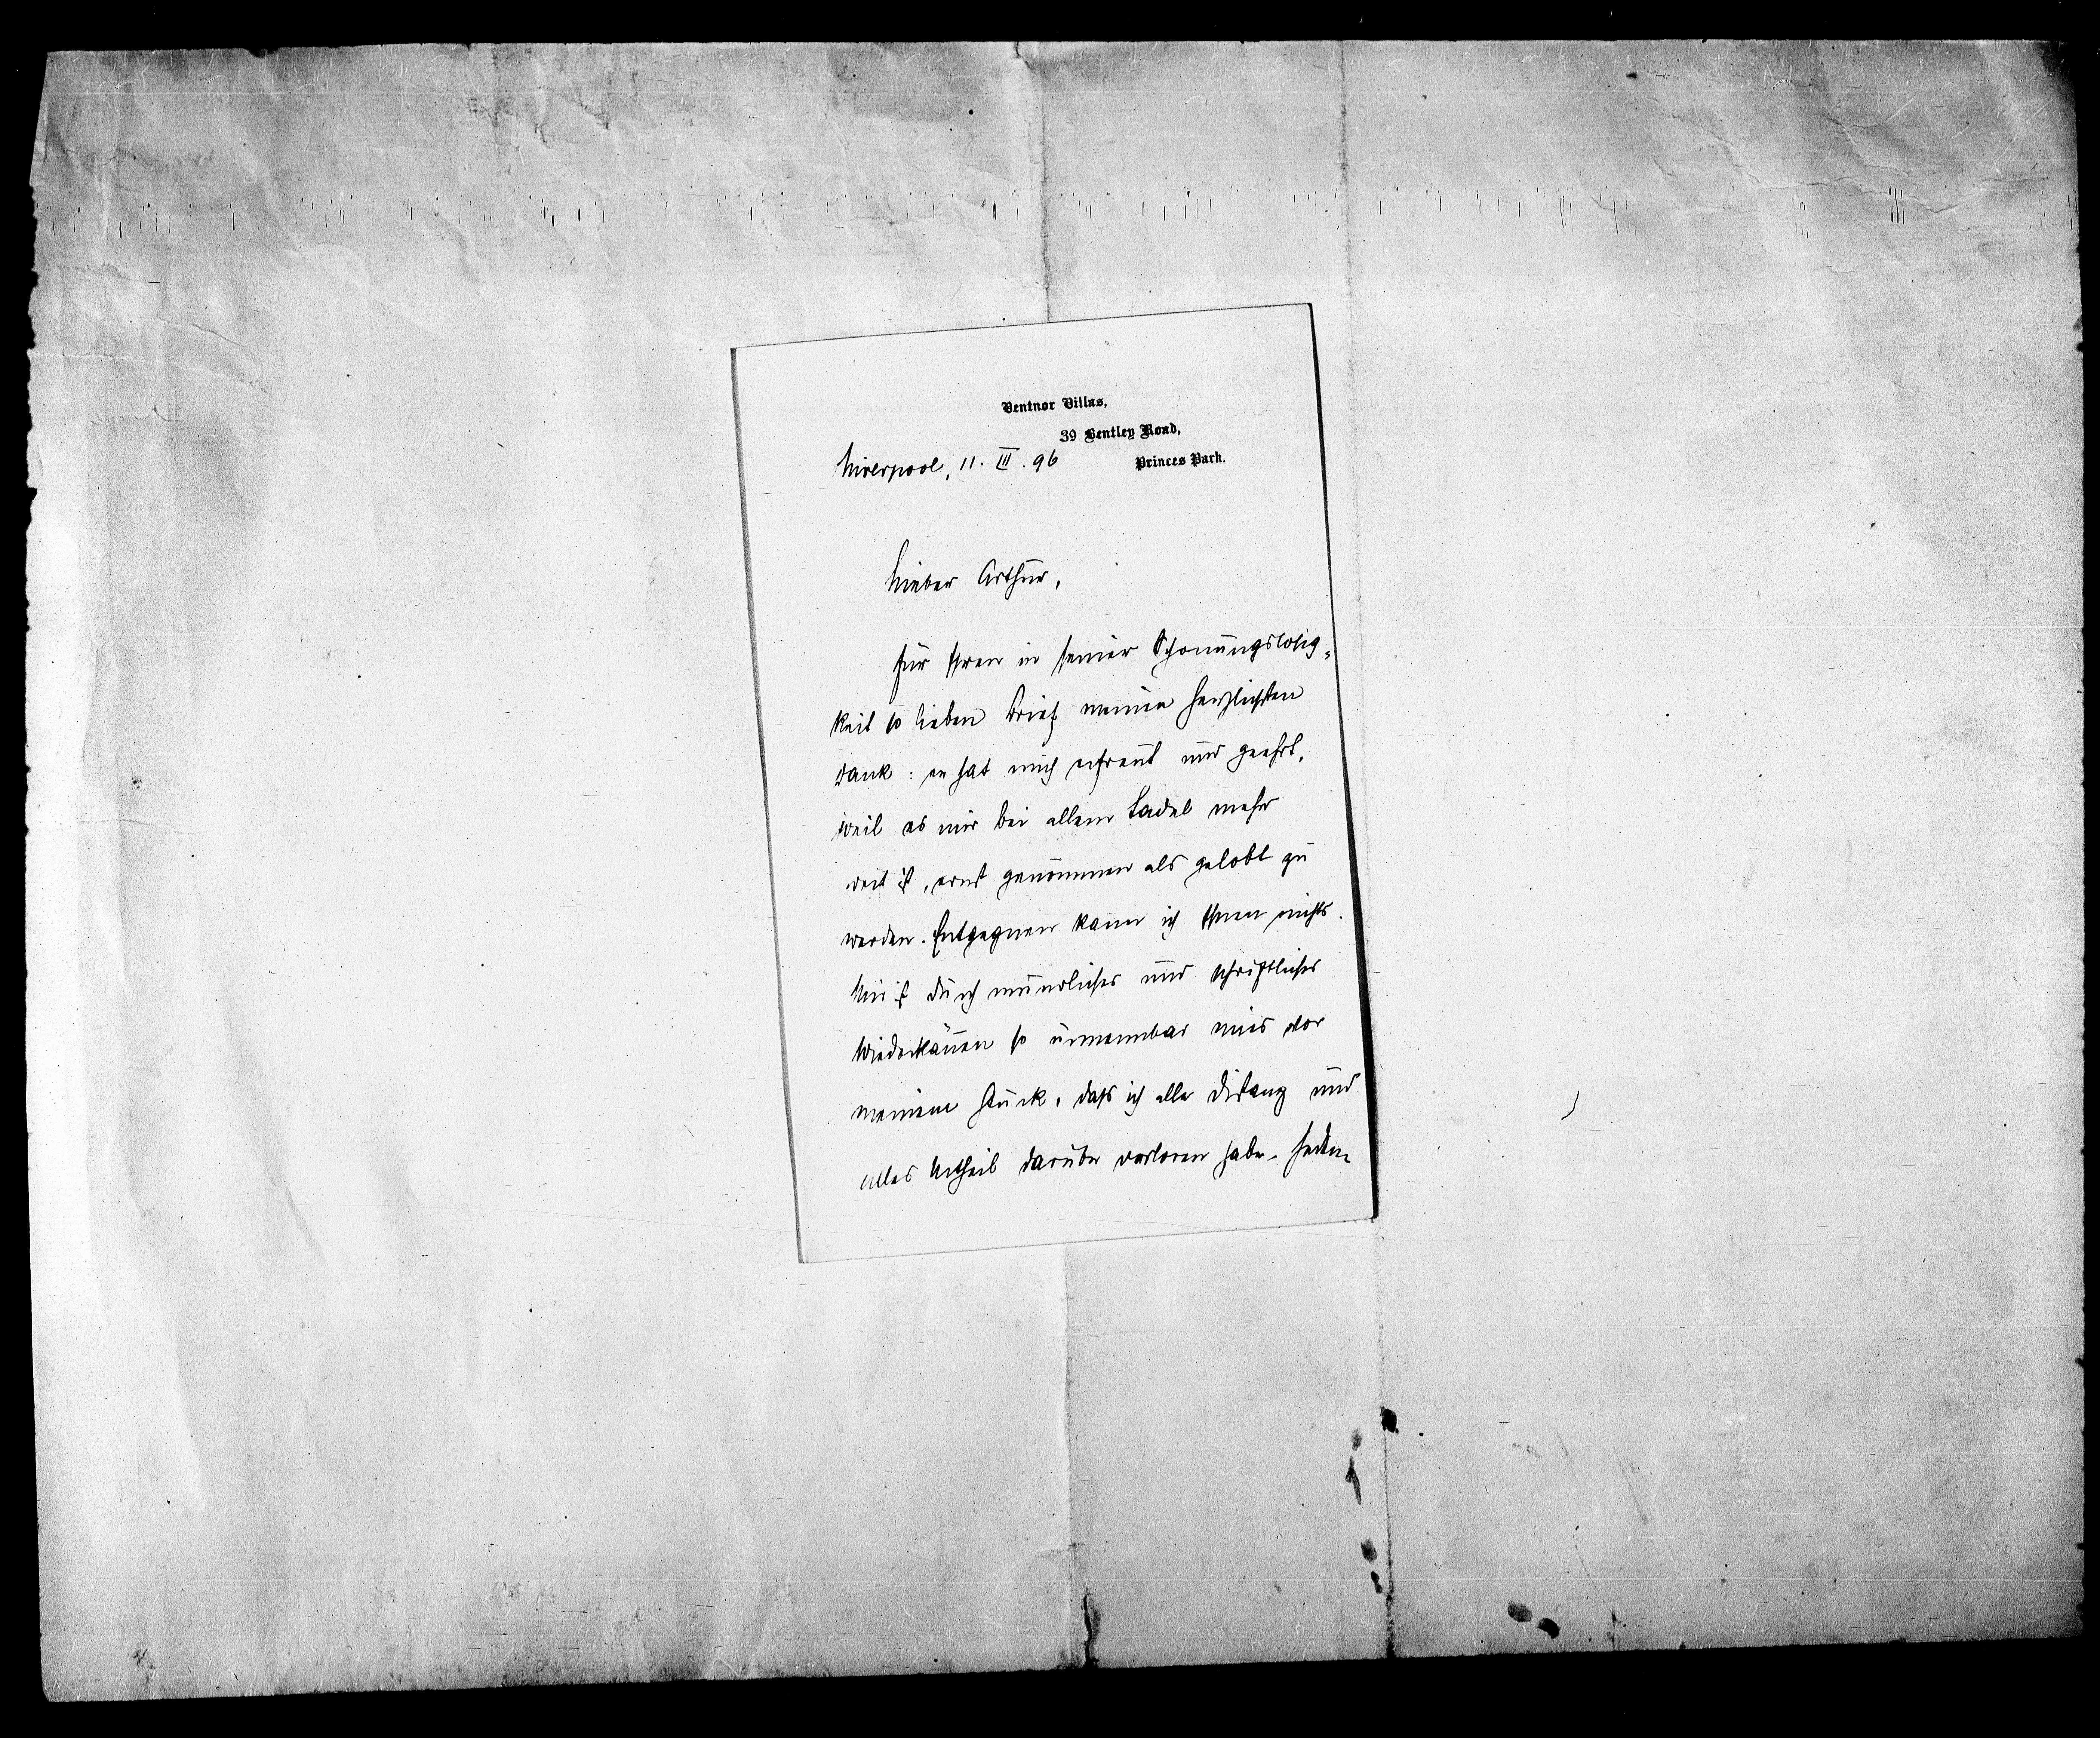 Ventnor Villas,
39 Bentley Road,
Princes Park.
Liverpool, 11. III. 96
Lieber Arthur,
für Ihren in seiner Schonungslosig-
keit so lieben Brief meinen herzlichsten
Dank: er hat mich erfreut und geehrt,
weil es mir bei allem Tadel mehr
wert ist, ernst genommen als gelobt zu
werden. Entgegnen kann ich Ihnen nichts.
Mir ist durch mündliches und schriftliches
Wiederkäuen so unnennbar mies vor
meinem Stück, dass ich alle Distanz und
alles Urtheil darüber verloren habe.